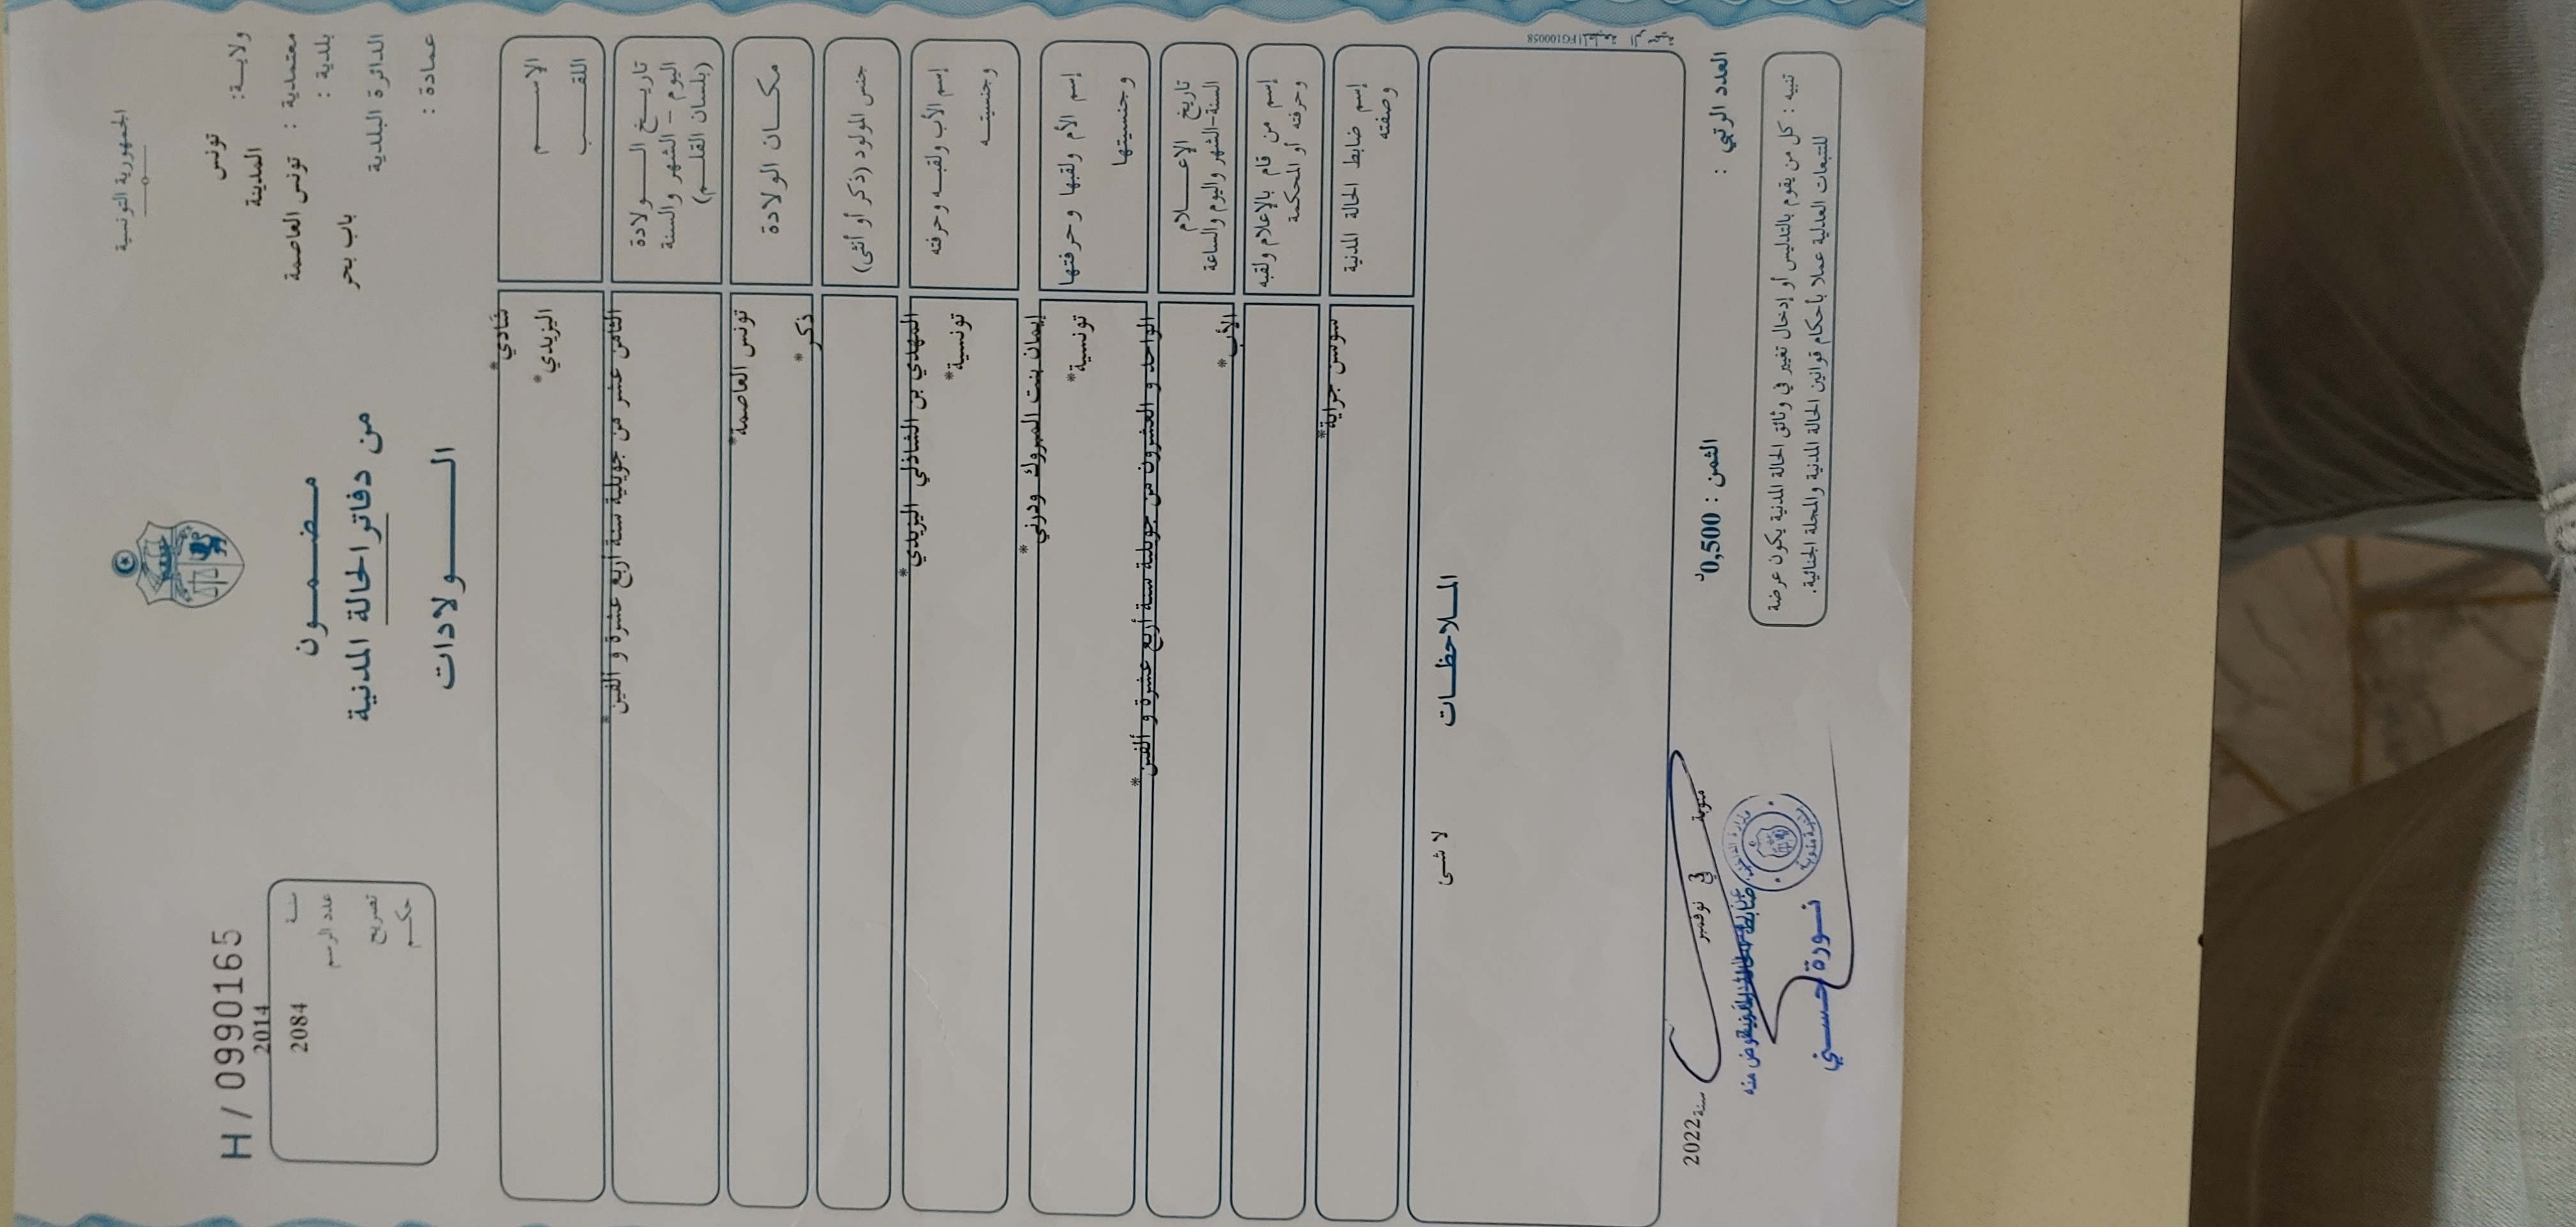 الجمهورية التونسية
ولاية: تونس
المدينة
معتمدية : تونس العاصمة
بلدية :
باب بحر
الدائرة البلدية
عمادة :
مضمون
من دفاتر الحالة المدنية
الولادات
H / 0990165
2014 سنة
2084 عدد الرسم
تصريح
حكم
الاسم شادي*
اللقب اليزيدي*
تاريخ الولادة
اليوم - الشهر والسنة
(بلسان القلم)
الثامن عشر من جويلية سنة أربع عشرة و ألفين*
مكان الولادة تونس العاصمة*
جنس المولود (ذكر أو أنثى) ذكر*
إسم الأب ولقبه وحرفته
وجنسيته
المهدي بن الشاذلي اليزيدي*
تونسية*
إسم الأم ولقبها وحرفتها
وجنسيتها
إيمان بنت المبروك ودرني*
تونسية*
تاريخ الإعلام
السنة-الشهر واليوم والساعة
الواحد و العشرون من جويلية سنة أربع عشرة و ألفين*
إسم من قام بالإعلام ولقبه
وحرفته أو المحكمة
الأب*
إسم ضابط الحالة المدنية
وصفته
سوسن جراية*
الملاحظات
لا شئ
المطبعة الرسمية FG100058
العدد الرتبي :
الثمن : 0,500د
منوبة في 3 نوفمبر سنة 2022
تنبيه : كل من يقوم بالتدليس أو إدخال تغيير في وثائق الحالة المدنية يكون عرضة
للتتبعات العدلية عملا بأحكام قوانين الحالة المدنية والمجلة الجنائية.
نورة حسني